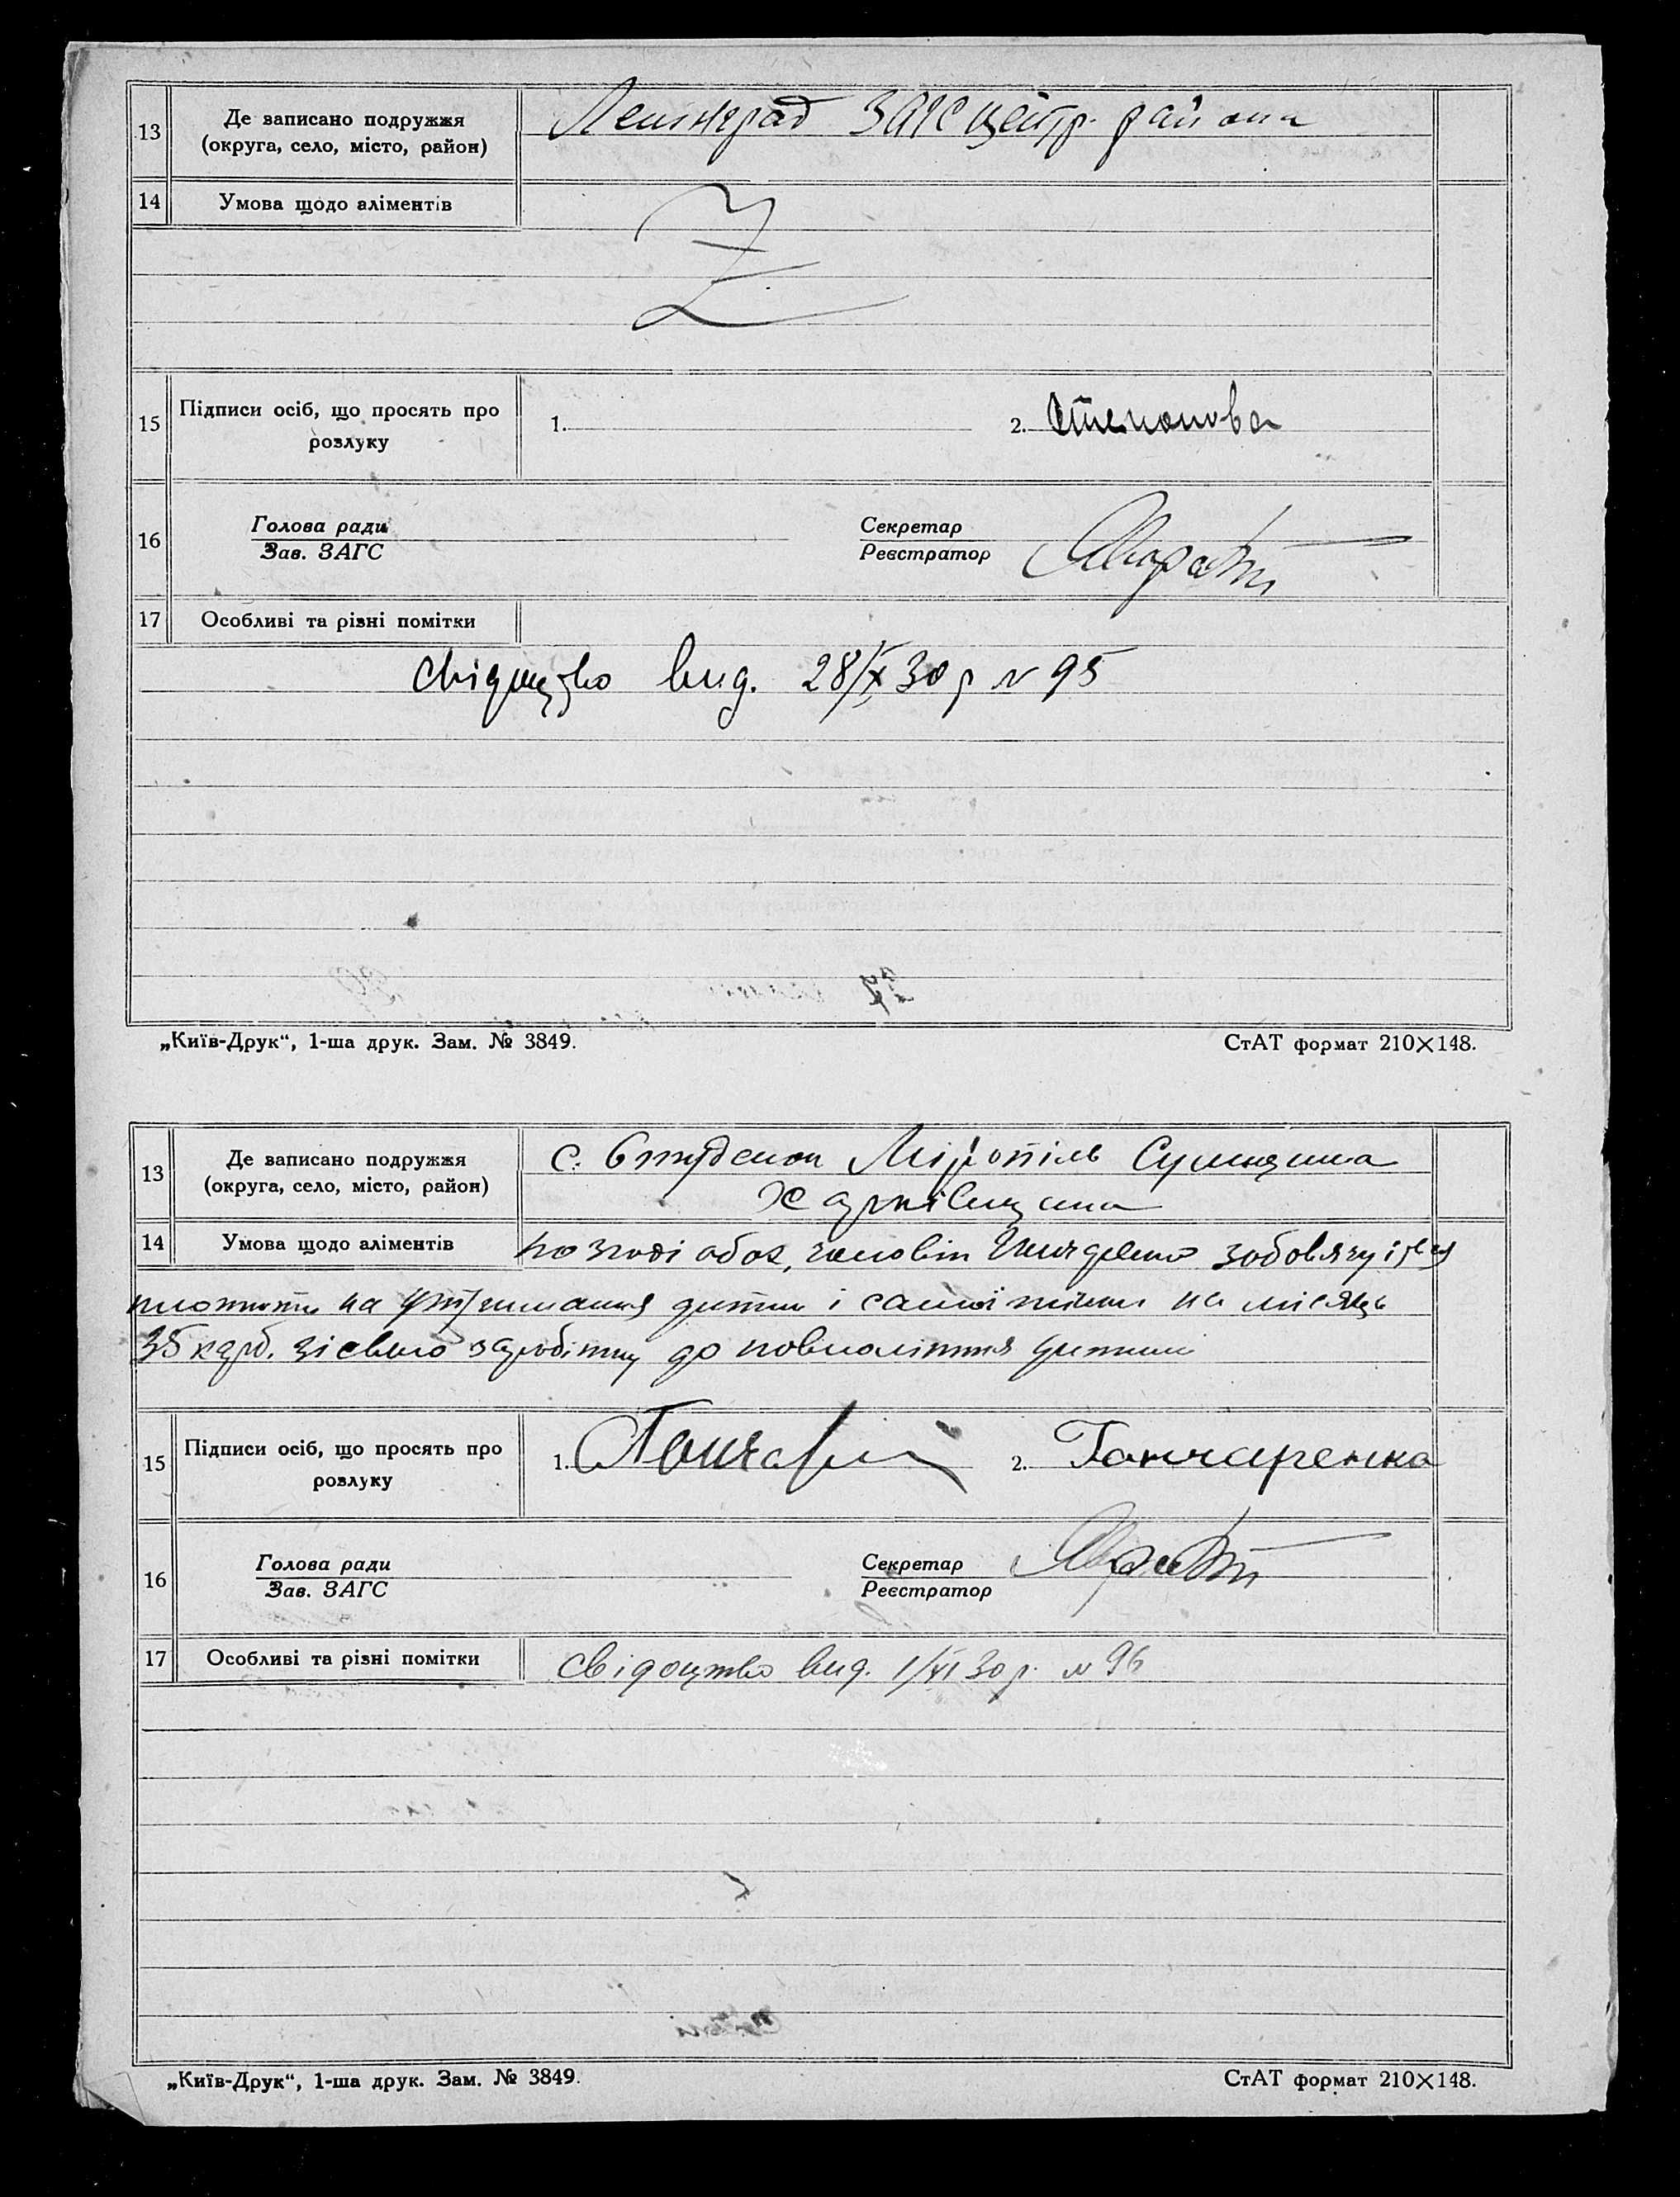 13
Де записано подружжя
(округа, село, місто, район)
Ленінград ЗАГС центр. района
14
Умова щодо аліментів
15
Підписи осіб, що просять про
розлуку
1.
2. Степанова
16
Голова ради
Зав. ЗАГС
Секретар
Реєстратор
17
Особливі та різні помітки
Свідоцтво вид. 28/X 30 р № 95
„Київ-Друк“, 1-ша друк. Зам. № 3849.
СтАТ формат 210×148.
13
Де записано подружжя
(округа, село, місто, район)
с. Миропіль Сумщина
Харківщина
14
Умова щодо аліментів
по згоді обох, чоловік зобовязується
платити на утримання дитини і самої жінки на місяць
35 карб. зі свого заробітку до повноліття дитини
15
Підписи осіб, що просять про
розлуку
1.
2. Ганчаренка
16
Голова ради
Зав. ЗАГС
Секретар
Реєстратор
17
Особливі та різні помітки
свідоцтво вид. 1/XI 30 р. № 96
„Київ-Друк“, 1-ша друк. Зам. № 3849.
СтАТ формат 210×148.